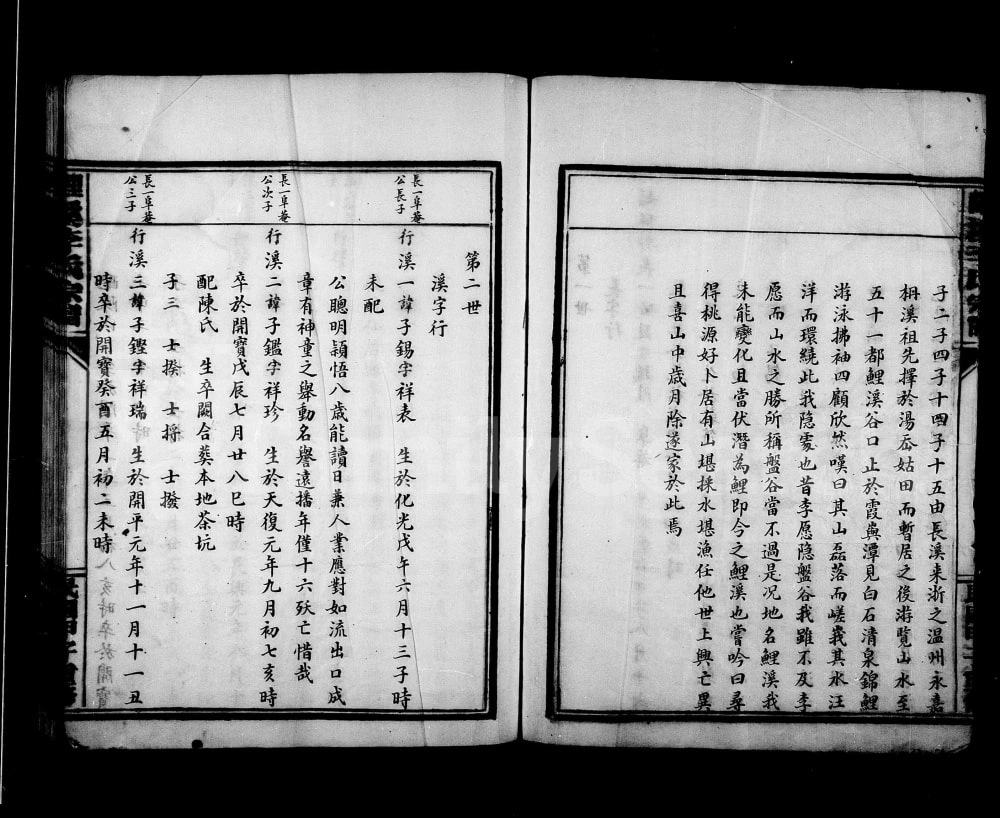 子二子四子十四子十五由長溪来浙之温州永嘉
枏溪祖先擇於湯岙姑田而暫居之後游覽山水至
五十一都鯉溪谷口止於霞㠘潭見白石清泉錦鯉
游泳拂袖四顧欣然嘆曰其山磊落而嵯峩其水汪
洋而環繞此我隐䖏也昔李愿隐盤谷我雖不及李
愿而山水之勝所稱盤谷當不過是况地名鯉溪我
未能變化且當伏潛為鯉即今之鯉溪也嘗吟曰尋
得桃源好卜居有山堪採水堪漁任他世上興亡異
且喜山中歳月除遂家於此焉
第二世
溪字行
長一阜菴
公長子
行溪一諱子錫字祥表 生於化光戊午六月十三子時
未配
公聰明穎悟八歳能讀日兼人業應對如流出口成
章有神童之舉動名譽遠播年僅十六殀亡惜哉
長一阜菴
公次子
行溪二諱子鑑字祥珍 生於天復元年九月初七亥時
卒於開寶戊辰七月廿八巳時
配陳氏 生卒闕合葬本地茶坑
子三 士揆 士捋 士撥
長一阜菴
公三子
行溪三諱子鏗字祥瑞 生於開平元年十一月十一丑
時卒於開寶癸酉五月初二未時